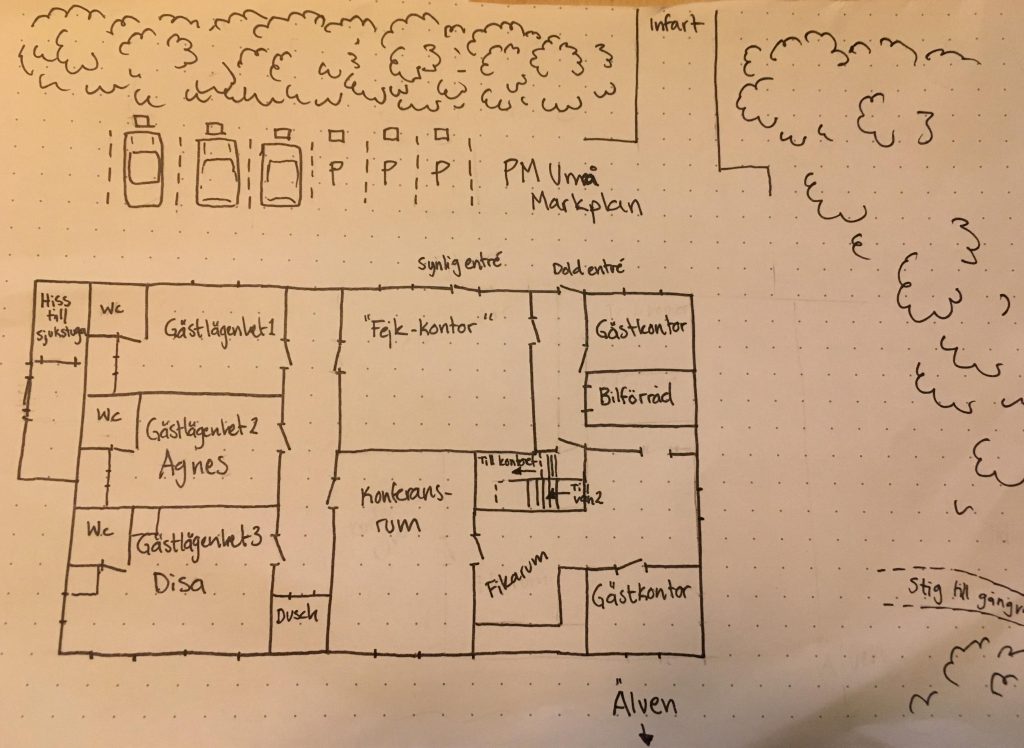 Infart
P P P
PM Umeå
Markplan
Synlig entré
Dold entré
Hiss
till
sjukstuga
WC
Gästlägenhet 1
"Fejk-kontor"
Gästkontor
Bilförråd
WC
Gästlägenhet 2
Agnes
Till kontoret
Till
vån 2
Konferans-
rum
WC
Gästlägenhet 3
Disa
Fikarum
Gästkontor
Dusch
Stig till gångv
Älven